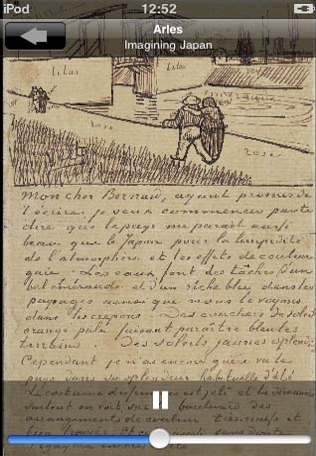 iPod
12:52
Arles
Imagining Japan
lilas
lilas
rose
rose
Mon cher Bernard, ayant promis de
t'écrire je veux commencer par te
dire que le pays me parait aussi
beau que le Japon pour la limpidité
de l'atmosphère et les effets de couleur
gaie. Les eaux font des taches d'un
bel émeraude et d'un riche bleu dans les
paysages ainsi que nous le voyons
dans les crepons. Des couchers de soleil
orangé pâle faisant paraitre bleus les
terrains. Des soleils jaunes splendides.
Cependant je n'ai encore guère vu le
pays dans sa splendeur habituelle d'été
Le costume des femmes est joli et le dimanche
surtout on voit sur le boulevard des
arrangements de couleur très naifs et
bien trouvés. Et cela aussi sans doute